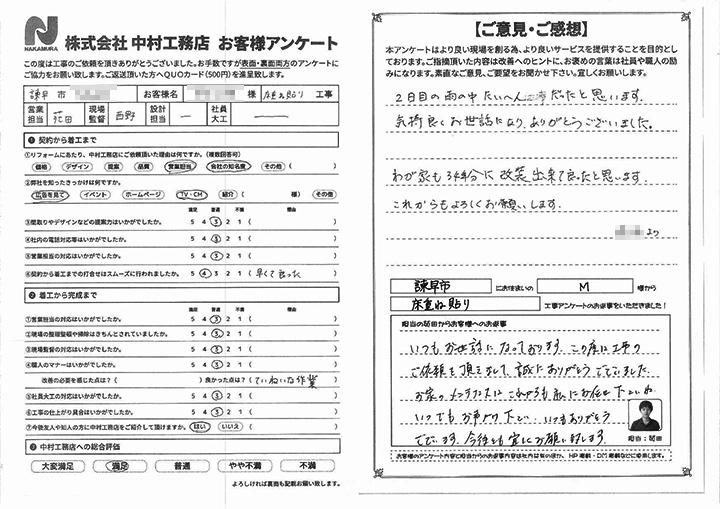 NAKAMURA
株式会社 中村工務店 お客様アンケート
この度は工事のご依頼を頂きありがとうございました。お手数ですが表面・裏面両方のアンケートに
ご協力をお願い致します。ご返送頂いた方へQUOカード(500円)を進呈致します。
諫早 市 お客様名 様 床重ね貼り 工事
営業担当 苑田 現場監督 西野 設計担当 ー 社員大工 ー
❶ 契約から着工まで
①リフォームにあたり、中村工務店にご依頼頂いた理由は何ですか。(複数回答可)
価格 デザイン 提案 品質 営業担当 会社の知名度 その他 (
②弊社を知ったきっかけは何ですか。
広告を見て イベント ホームページ TV・CM 紹介 ( 様) その他
満足 普通 不満 理由
③間取りやデザインなどの提案力はいかがでしたか。 5 4 3 2 1 (
④社内の電話対応等はいかがでしたか。 5 4 3 2 1 (
⑤営業担当の対応はいかがでしたか。 5 4 3 2 1 (
⑥契約から着工までの打合せはスムーズに行われましたか。 5 4 3 2 1 ( 早くて良かった
❷ 着工から完成まで
満足 普通 不満 理由
①営業担当の対応はいかがでしたか。 5 4 3 2 1 (
②現場の整理整頓や掃除はきちんとされていましたか。 5 4 3 2 1 (
③現場監督の対応はいかがでしたか。 5 4 3 2 1 (
④職人のマナーはいかがでしたか。 5 4 3 2 1 (
改善の必要を感じた点は？( )良かった点は？( ていねいな作業
⑤社員大工の対応はいかがでしたか。 5 4 3 2 1 (
⑥工事の仕上がり具合はいかがでしたか。 5 4 3 2 1 (
⑦今後友人や知人の方に中村工務店をご紹介して頂けますか。 はい いいえ (
❸ 中村工務店への総合評価
大変満足 満足 普通 やや不満 不満
よろしければ裏面も記載お願い致します。
【ご意見・ご感想】
本アンケートはより良い現場を創る為、より良いサービスを提供することを目的とし
ております。ご指摘頂いた内容は改善へのヒントに、お褒めの言葉は社員や職人の励
みになります。素直なご意見、ご要望をお聞かせ下さい。宜しくお願いします。
2日目の雨の中 たいへん だったと思います。
気持良くお世話になり、ありがとうございました。
わが家も 3年分に 改装出来て良かったと思います。
これからもよろしくお願いします。
より
諫早市 にお住まいの M 様から
床重ね貼り 工事アンケートのお返事をいただきました！
担当の苑田からお客様へのお返事
いつもお世話になっております。この度は工事の
ご依頼を頂きまして、誠にありがとうございました。
お家のメンテナンスは これからも 私にお任せ下さいね
いつでもお声かけ下さい。いつもありがとう
ございます。今後も宜しくお願い致します。
担当:苑田